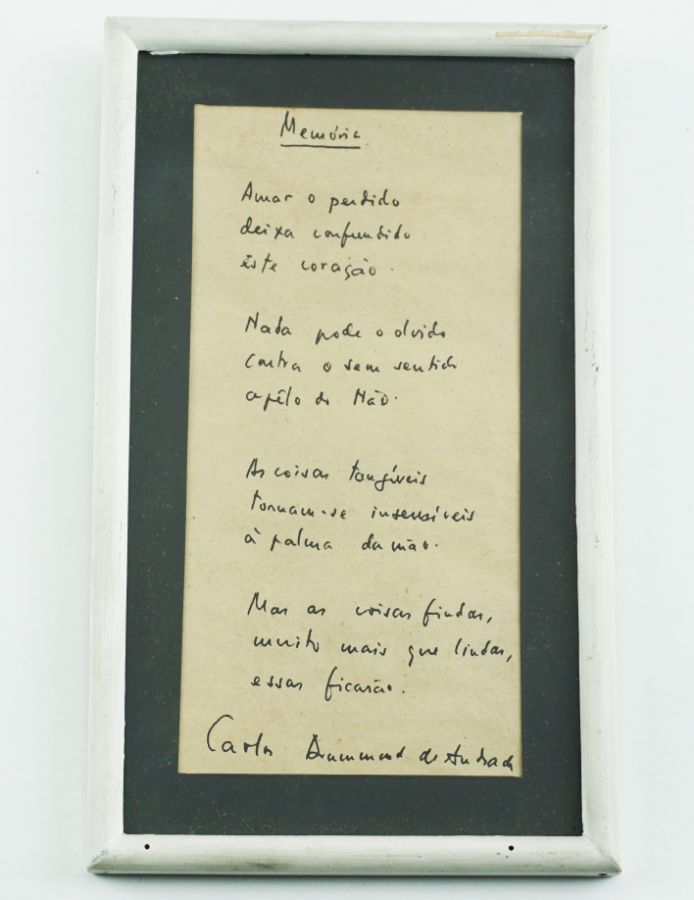 Memória
Amar o perdido
deixa confundido
êste coração.
Nada pode o olvido
contra o sem sentido
apêlo do Não.
As coisas tangíveis
tornam-se insensíveis
à palma da mão.
Mas as coisas findas,
muito mais que lindas,
essas ficarão.
Carlos Drummond de Andrade